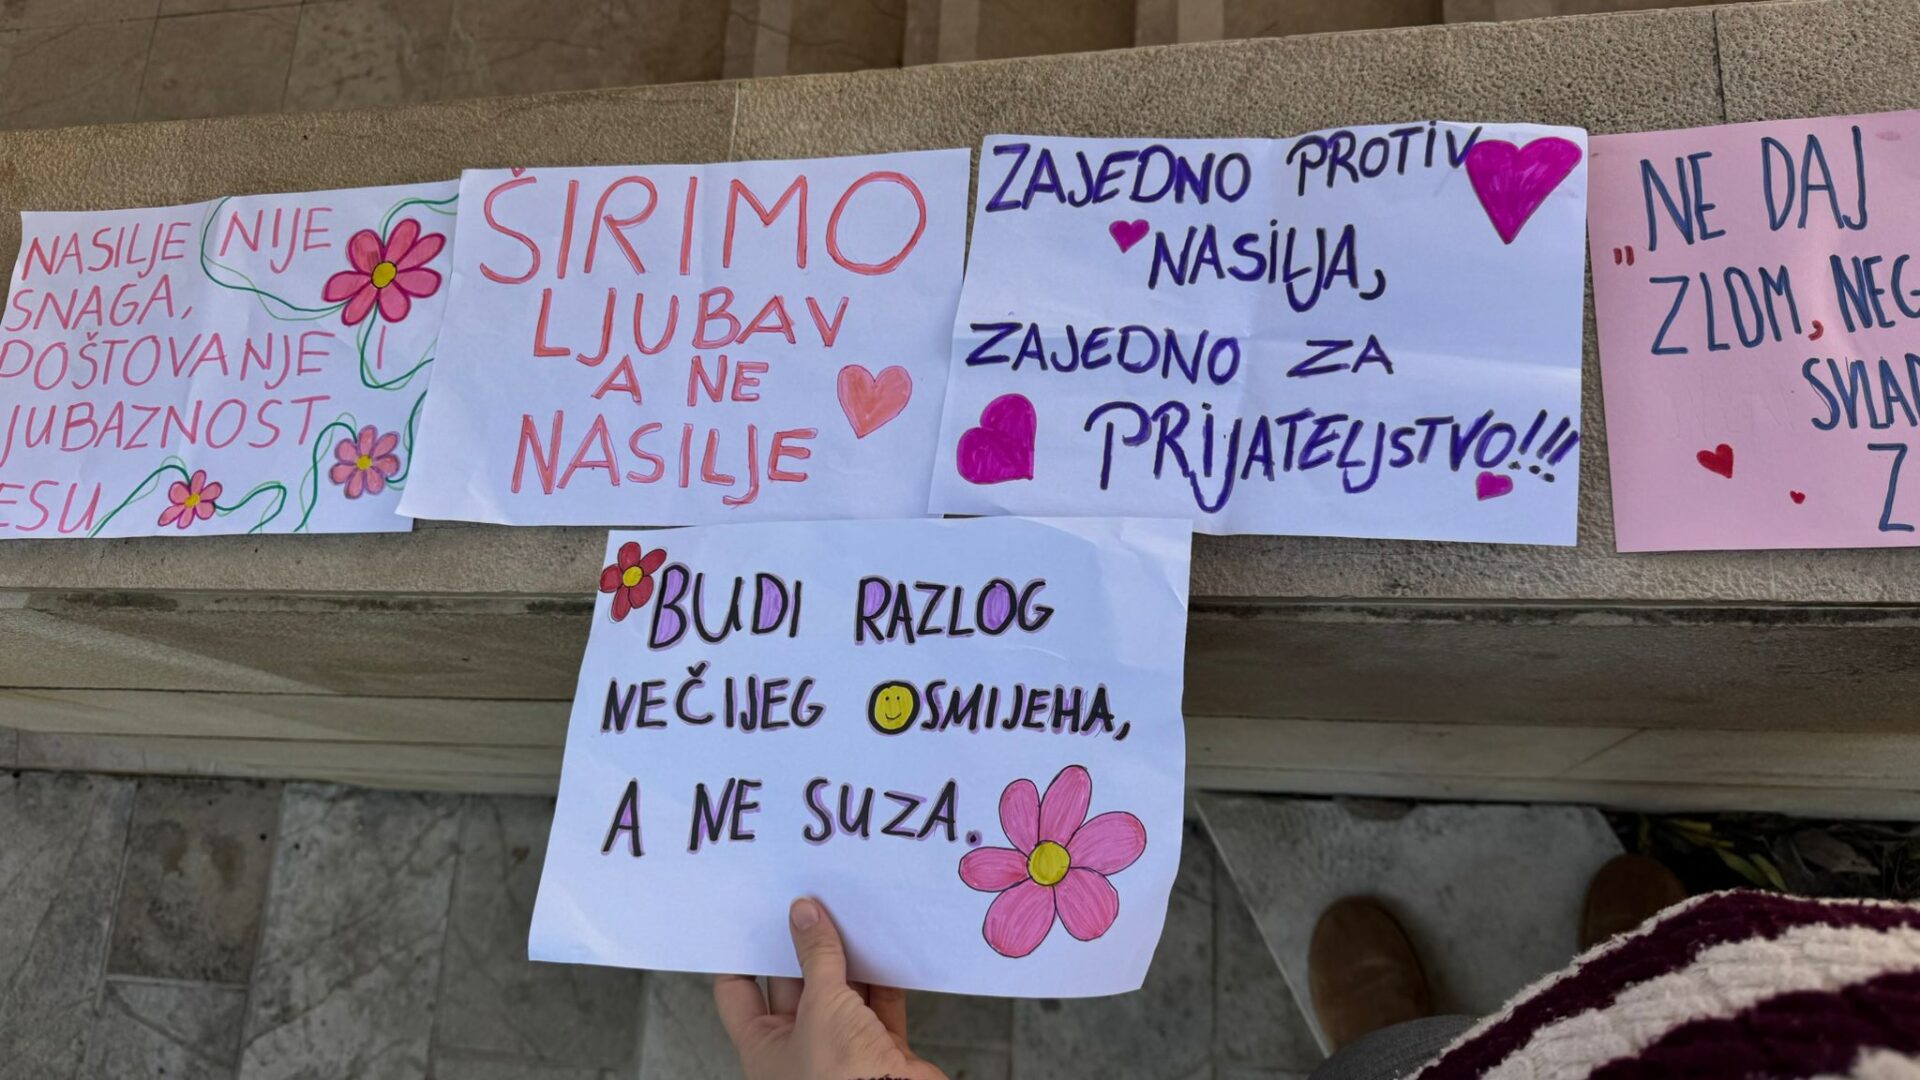 NASILJE NIJE
SNAGA,
DOŠTOVANJE I
JUBAZNOST
ESU
ŠIRIMO
LJUBAV
A NE
NASILJE
ZAJEDNO PROTIV
NASILJA,
ZAJEDNO ZA
PRIJATELJSTVO!!!
"NE DAJ
ZLOM, NEG
SVLAD
Z
BUDI RAZLOG
NEČIJEG OSMIJEHA,
A NE SUZA.